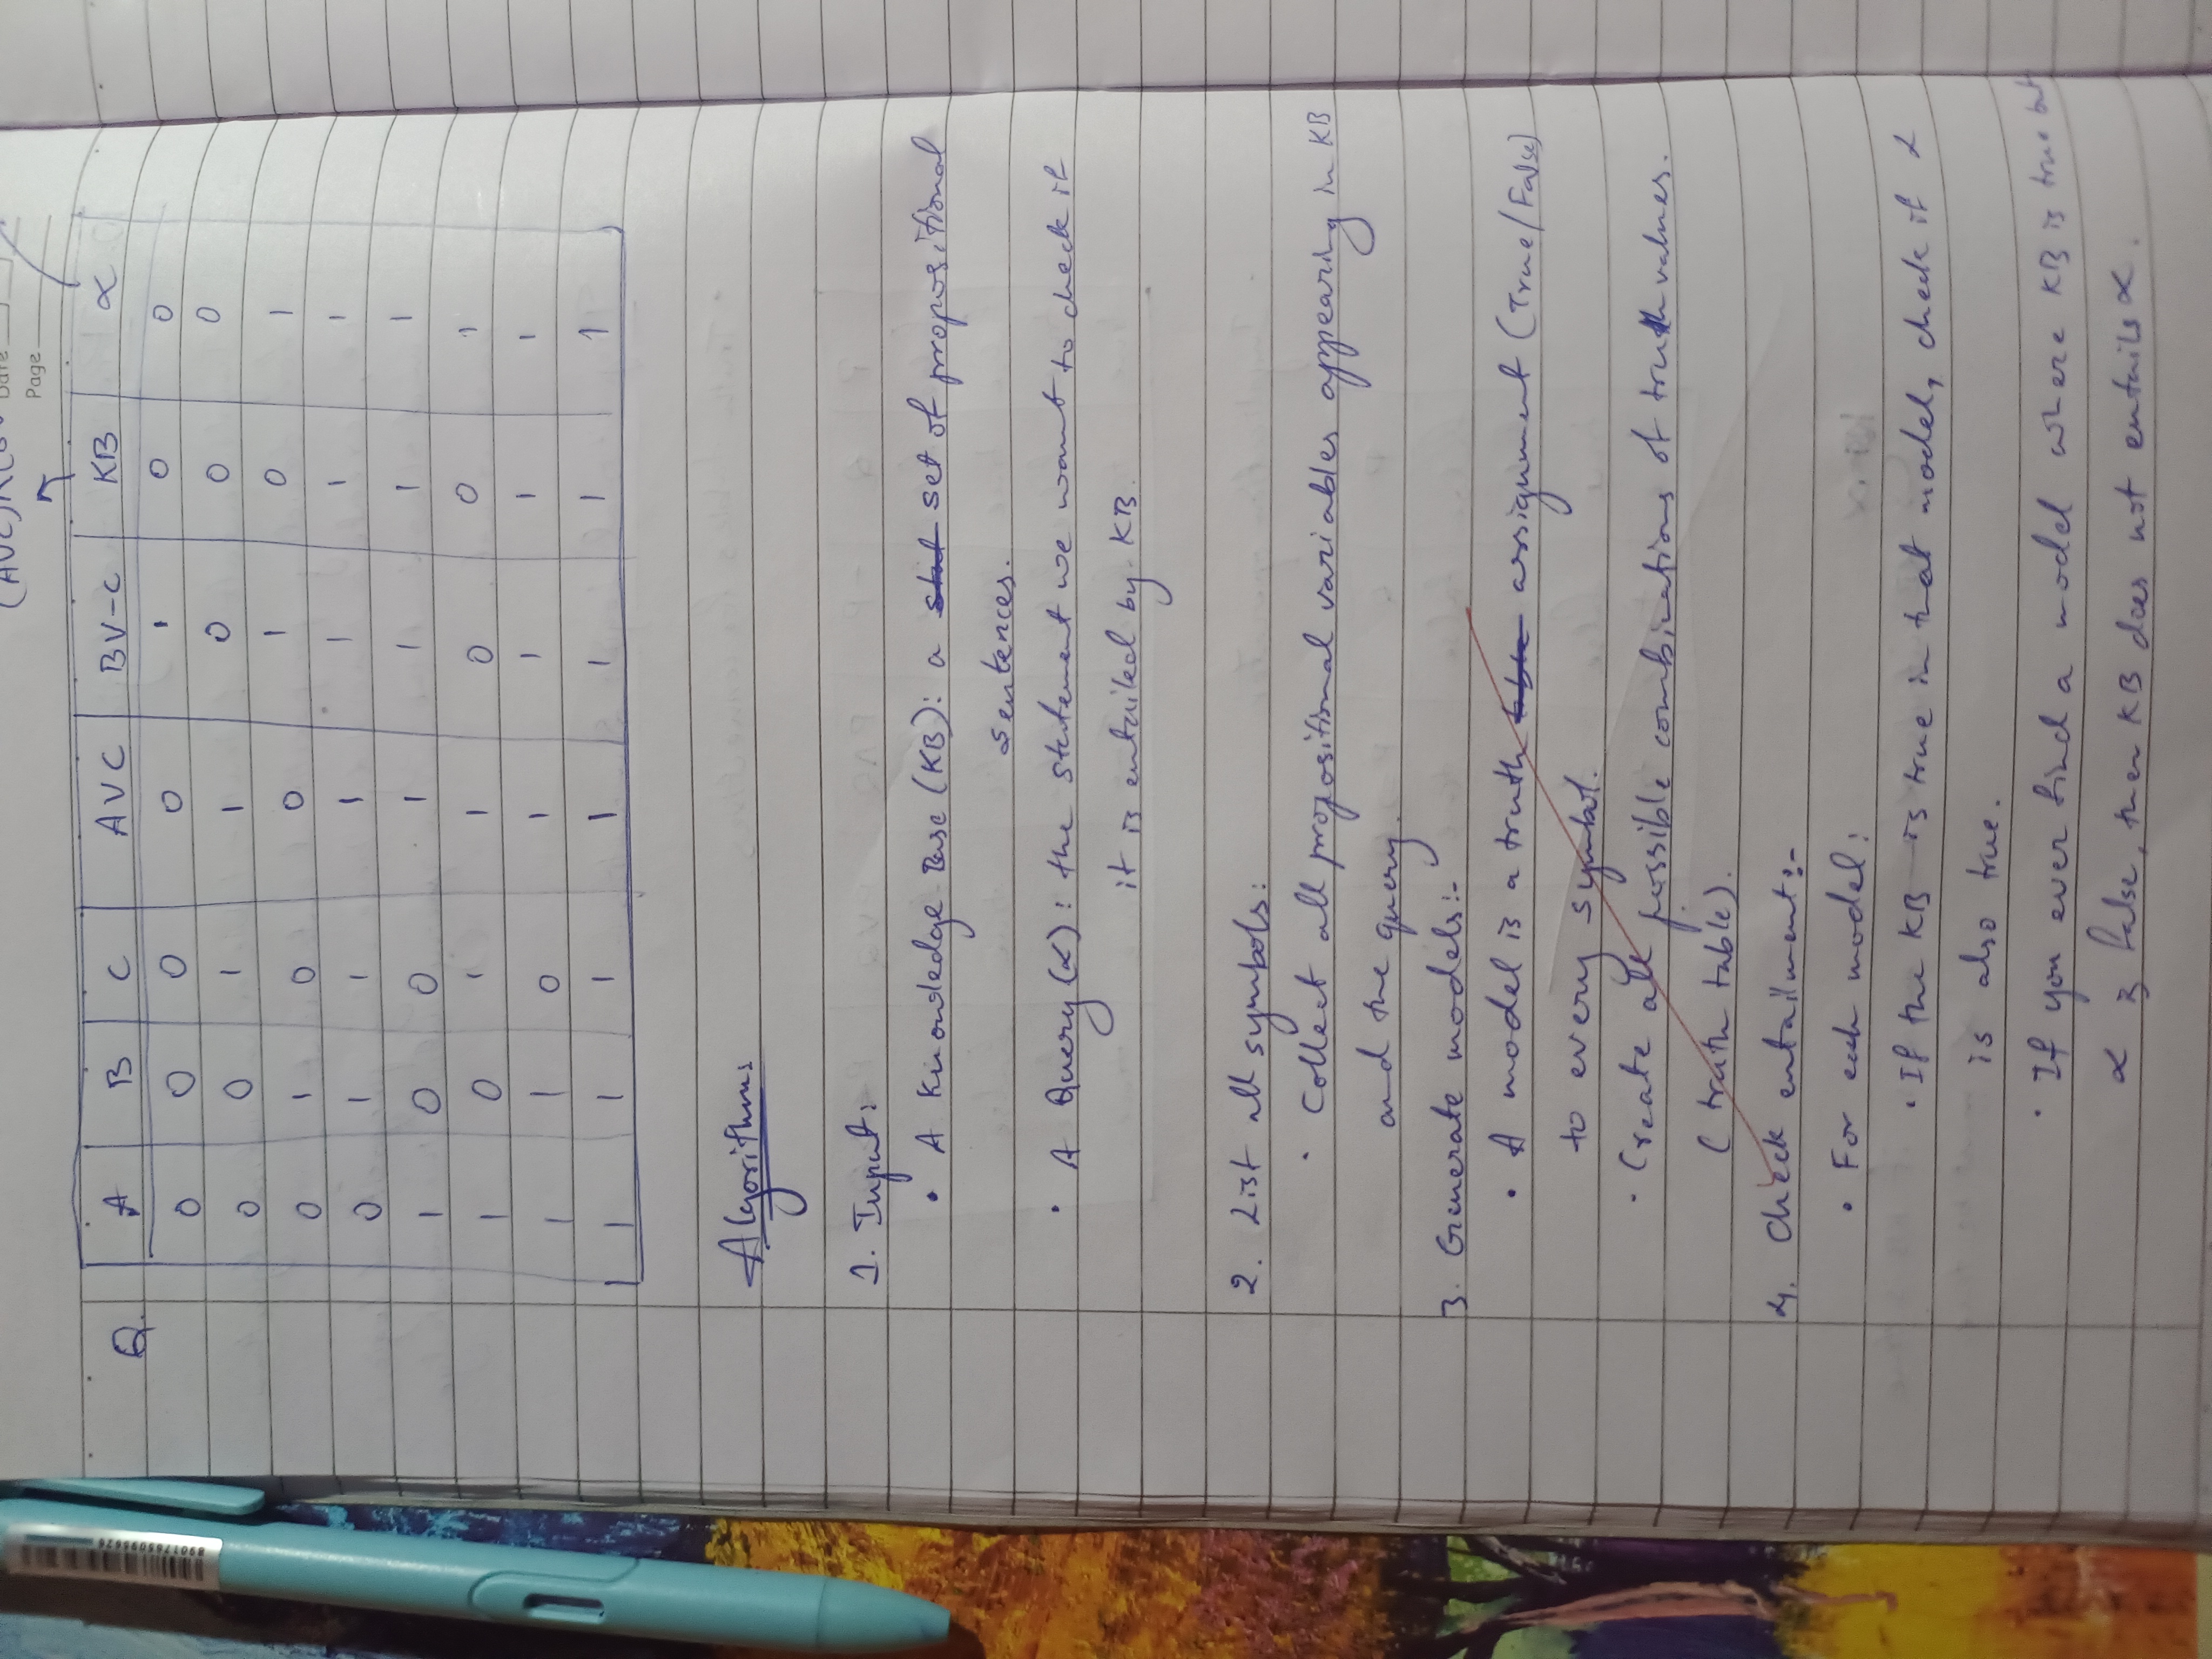 (AVC)∧(B
Date
Page
Q.
A B C AVC BV-C KB α
0 0 0 0 1 0 0
0 0 1 1 0 0 0
0 1 0 0 1 0 1
0 1 1 1 1 1 1
1 0 0 1 1 1 1
1 0 1 1 0 0 1
1 1 0 1 1 1 1
1 1 1 1 1 1 1
Algorithm:
1. Input:
• A Knowledge Base (KB): a set of propositional
sentences.
• A Query (α): the statement we want to check if
it is entailed by KB.
2. List all symbols:
• Collect all propositional variables appearing in KB
and the query.
3. Generate models:-
• A model is a truth table assignment (True/False)
to every symbol.
• Create all possible combinations of truth values.
(truth table).
4. Check entailment:-
• For each model:
• If the KB is true in that model, check if α
is also true.
• If you ever find a model where KB is true but
α is false, then KB does not entails α.
8901765095626